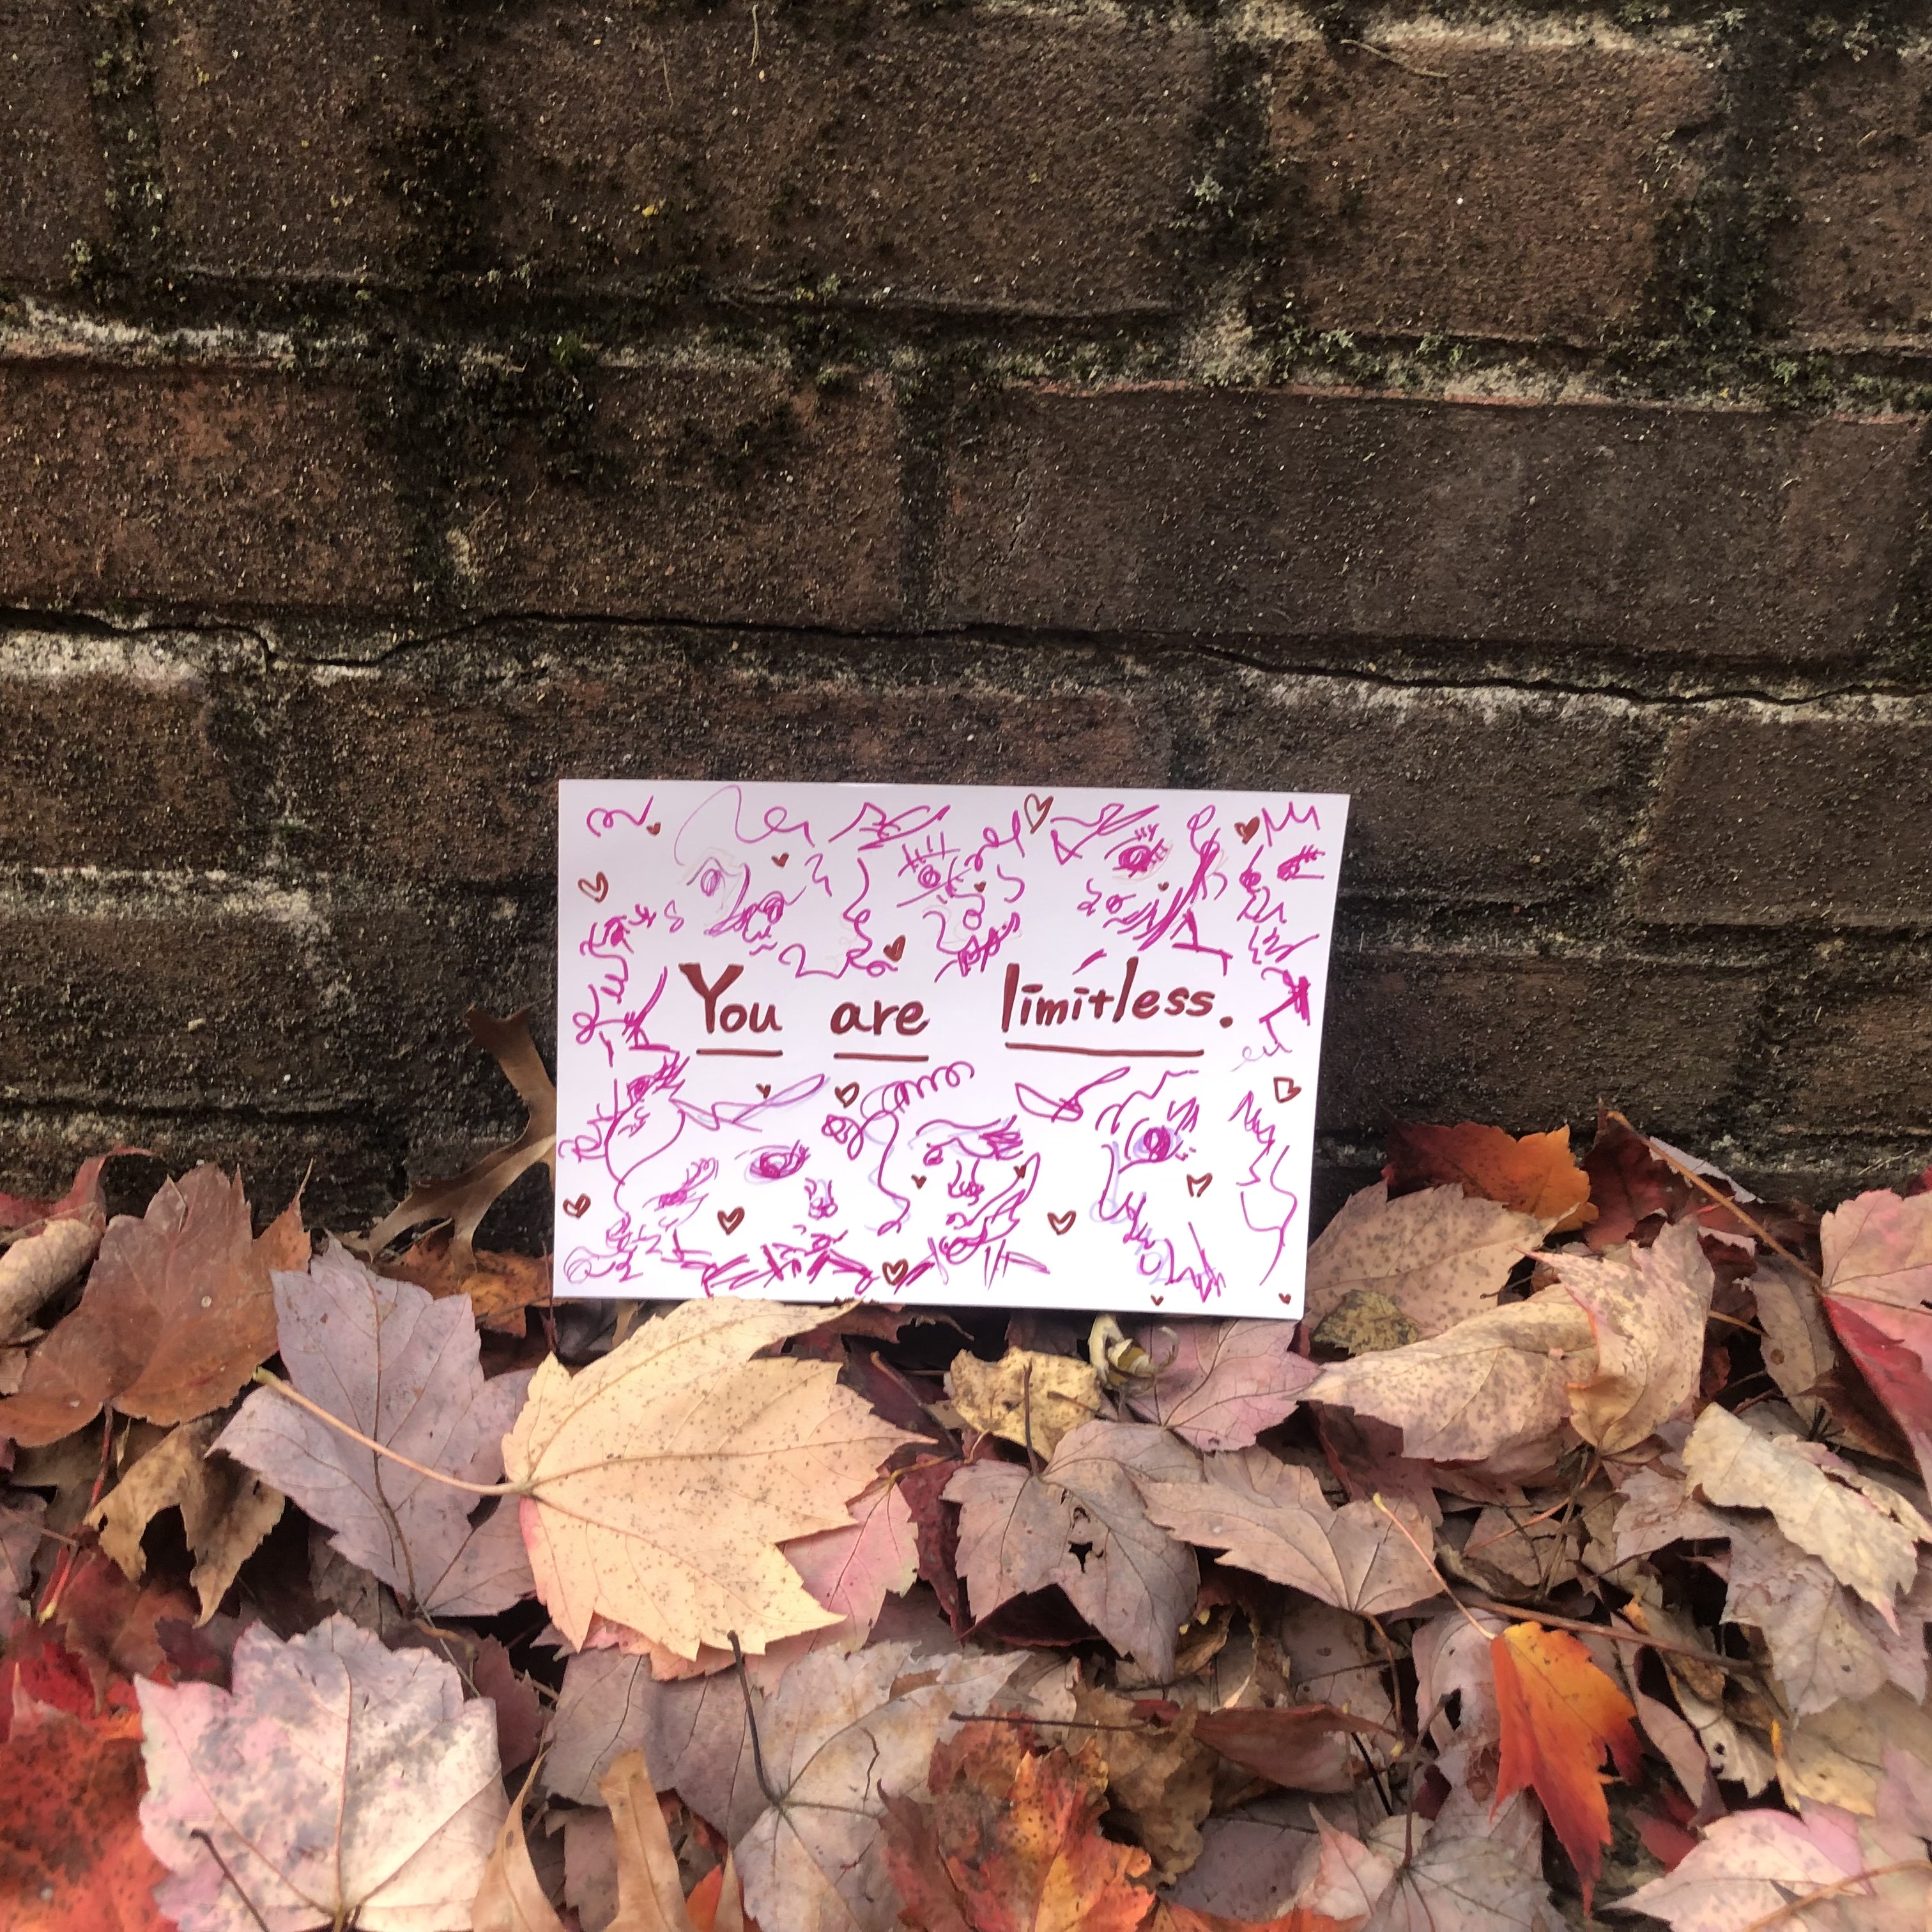 You are limitless.